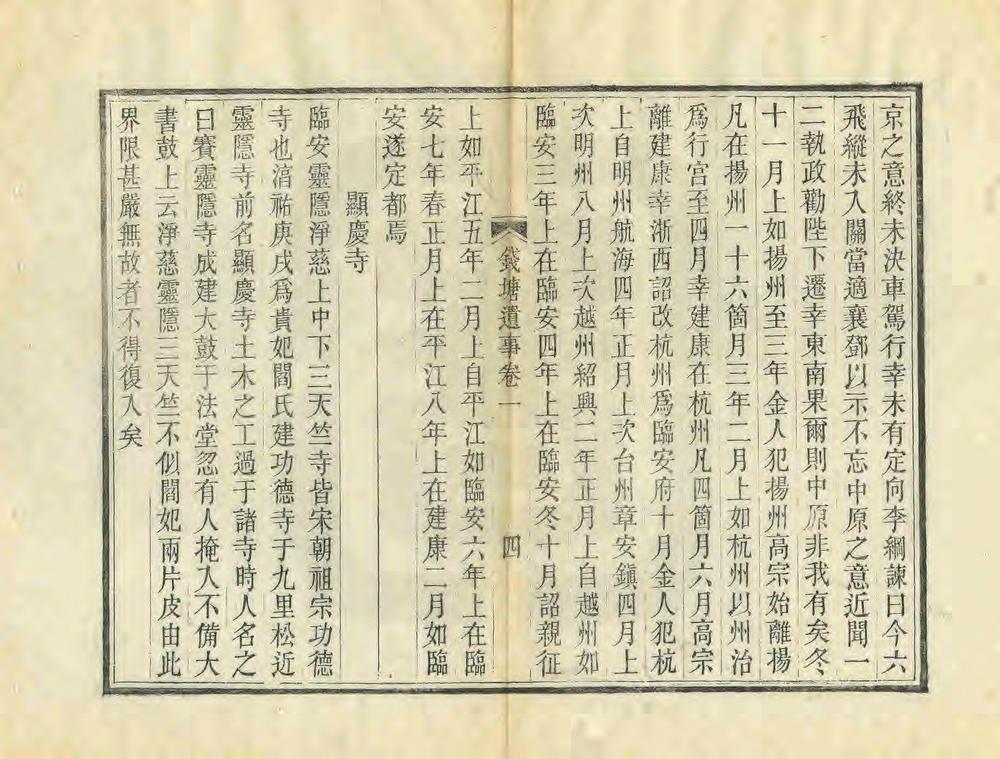 京之意終未決車駕行幸未有定向李綱諫曰今六
飛縱未入關當適襄鄧以示不忘中原之意近聞一
二執政勸陛下遷幸東南果爾則中原非我有矣冬
十一月上如揚州至三年金人犯揚州高宗始離揚
凡在揚州一十六箇月三年二月上如杭州以州治
爲行宮至四月幸建康在杭州凡四箇月六月高宗
離建康幸浙西詔改杭州爲臨安府十月金人犯杭
上自明州航海四年正月上次台州章安鎮四月上
次明州八月上次越州紹興二年正月上自越州如
臨安三年上在臨安四年上在臨安冬十月詔親征
錢塘遺事卷一
四
上如平江五年二月上自平江如臨安六年上在臨
安七年春正月上在平江八年上在建康二月如臨
安遂定都焉
顯慶寺
臨安靈隱淨慈上中下三天竺寺皆宋朝祖宗功德
寺也淳祐庚戌爲貴妃閻氏建功德寺于九里松近
靈隱寺前名顯慶寺土木之工過于諸寺時人名之
曰賽靈隱寺成建大鼓于法堂忽有人掩入不備大
書鼓上云淨慈靈隱三天竺不似閻妃兩片皮由此
界限甚嚴無故者不得復入矣